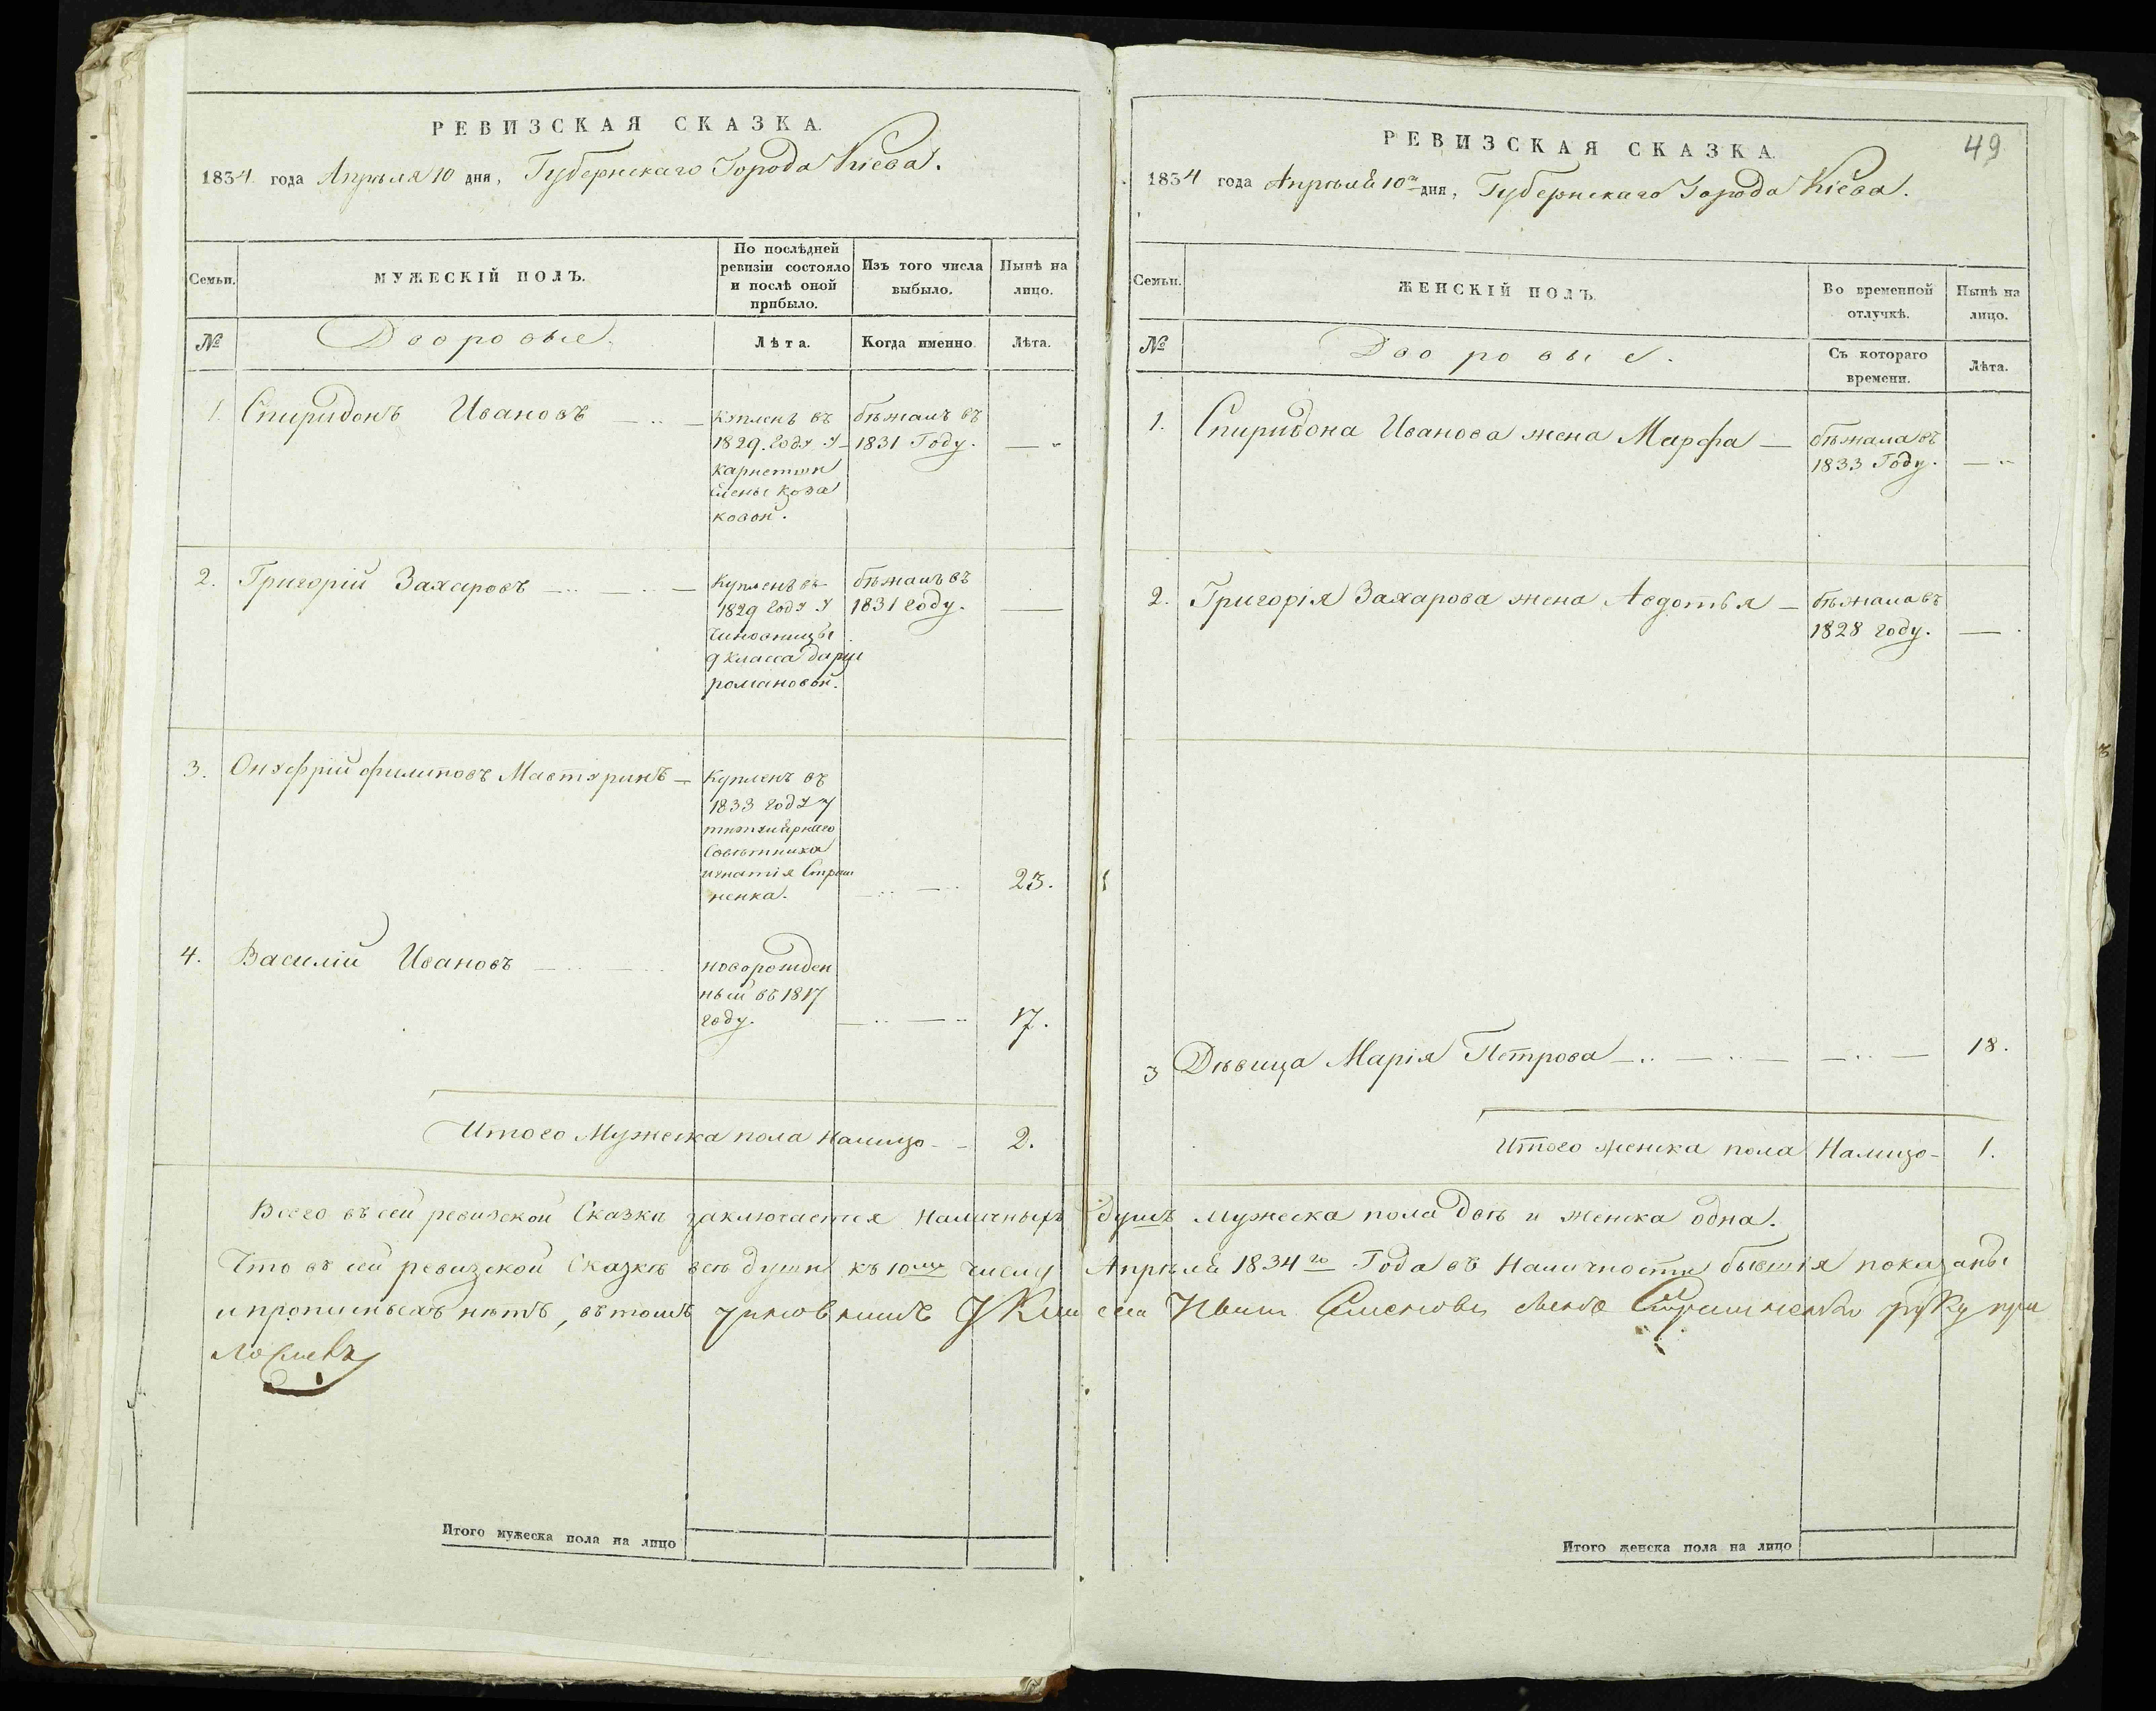 РЕВИЗСКАЯ СКАЗКА.
1834 года Апрѣля 10 дня, Губернскаго Города Кіева.
Семьи.
МУЖЕСКІЙ ПОЛЪ.
По послѣдней
ревизіи состояло
и послѣ оной
прибыло.
Изъ того числа
выбыло.
Нынѣ на
лицо.
№
Дворовые.
Лѣта.
Когда именно.
Лѣта.
1. Спиридонъ Ивановъ
купленъ въ
1829. году у
козаковой.
бѣжалъ въ
1831 Году.
2. Григорій Захаровъ
Купленъ въ
1829 году у
чиновницы
9 класса Дарьи
романовой.
бѣжалъ въ
1831 году.
3. Онуфрій филиповъ
Купленъ въ
1833 году у
титулярнаго
Совѣтника
игнатія
ненка.
23.
4. Василій Ивановъ
новорожден
ный въ 1817
году.
17.
Итого Мужеска пола Налицо 2.
Итого мужеска пола на лицо
РЕВИЗСКАЯ СКАЗКА.
49
1834 года Апрѣля 10го дня, Губернскаго Города Кіева.
Семьи.
ЖЕНСКІЙ ПОЛЪ.
Во временной
отлучкѣ.
Нынѣ на
лицо.
№
Дворовые.
Съ котораго
времени.
Лѣта.
1. Спиридона Иванова жена Марфа
бѣжала въ
1833 Году.
2. Григорія Захарова жена Авдотья
бѣжала въ
1828 году.
3 Дѣвица Марія Петрова 18.
Итого женска пола Налицо 1.
Всего въ сей ревизской Сказкѣ заключается Наличныхъ душъ мужеска пола двѣ и женска одна.
Что въ сей ревизской Сказкѣ всѣ души къ 10му числу Апрѣля 1834го Года въ Наличности бывшія показаны
и прописныхъ нѣтъ, въ томъ руку при
Итого женска пола на лицо